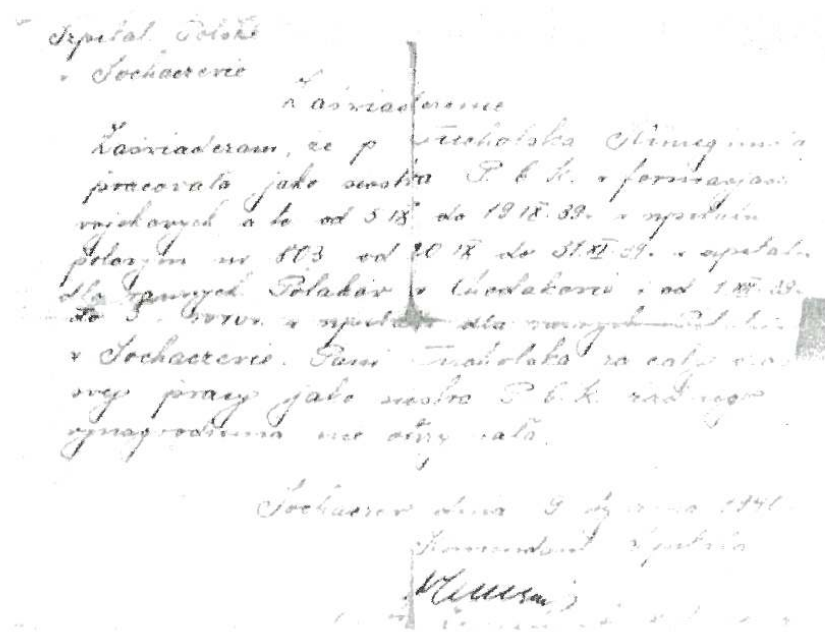 Szpital Polski
w Sochaczewie
Zaświadczenie
Zaświadczam, że p. Tucholska Kunegunda
pracowała jako siostra P. C. K. w formacjach
wojskowych a to od 5 IX do 19 IX. 39. w szpitalu
polowym nr 803 od 20 IX do 31. XI. 39. w szpitalu
dla rannych Polaków w Chodakowie i od 1 XII. 39.
do w szpitalu dla rannych Polaków
w Sochaczewie. Pani Tucholska za cały czas
swej pracy jako siostra P. C. K. żadnego
wynagrodzenia nie otrzymała.
Sochaczew dnia 9 1941.
Komendant Szpitala